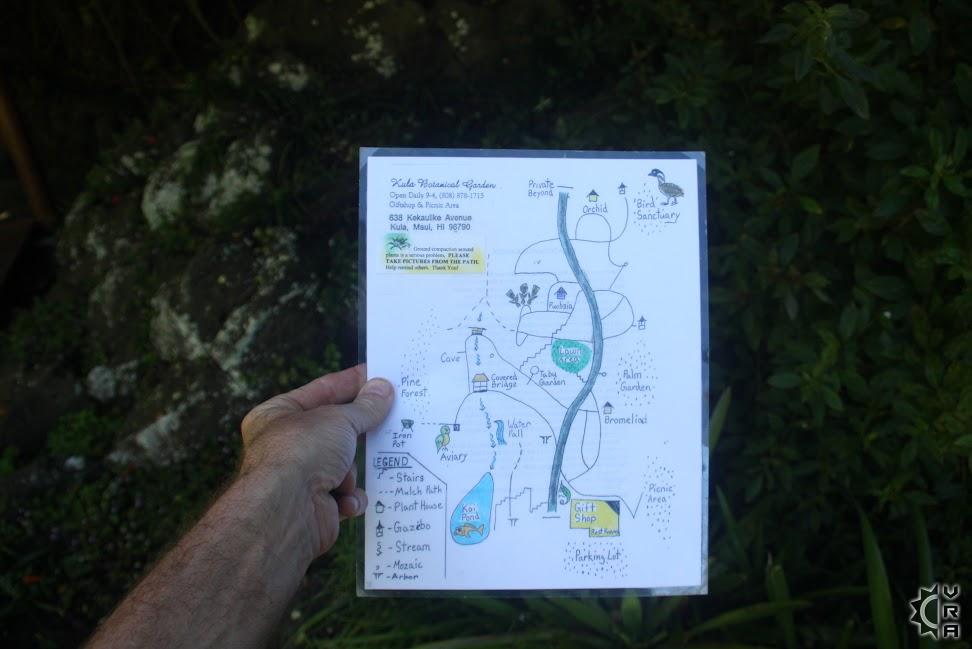 Kula Botanical Garden
Open Daily 9-4, (808) 878-1715
Giftshop & Picnic Area
638 Kekaulike Avenue
Kula, Maui, HI 96790
Ground compaction around
plants is a serious problem, PLEASE
TAKE PICTURES FROM THE PATH.
Help remind others. Thank You!
Private
Beyond
Orchid
"Bird"
Sanctuary
Fuchsia
Lawn
Area
Cave
Covered
Bridge
Taby
Garden
Palm
Garden
Pine
Forest
Bromeliad
Iron
Pot
Aviary
Water
Fall
Koi
Pond
Gift
Shop
Rest Rooms
Picnic
Area
Parking Lot
LEGEND
- Stairs
--- - Mulch Path
- Plant House
- Gazebo
- Stream
- Mozaic
- Arbor
VRA